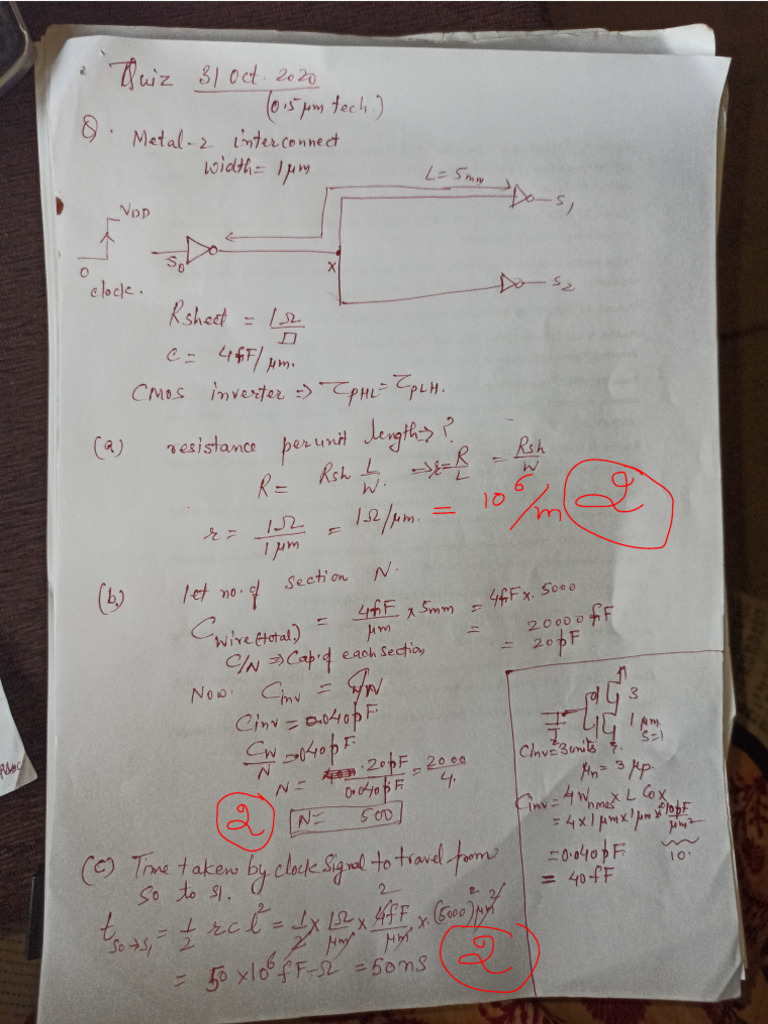 Quiz 31 Oct. 2020
(0.5 μm tech.)
Q. Metal-2 interconnect
width = 1 μm
L = 5mm
S1
VDD
S0
X
0
clock.
S2
Rsheet = 1Ω/□
C = 4fF/μm.
CMOS inverter => τPHL = τPLH.
(a) resistance per unit length → ?
R = Rsh L/W. => r = R/L = Rsh/W
r = 1Ω/1μm = 1Ω/μm. = 10^6/m 2
(b.) let no. of section N.
Cwire(total) = 4fF/μm × 5mm = 4fF × 5000
= 20000 fF
= 20pF
C/N => Cap. of each section
Now. Cinv = C/N
Cinv = 0.040pF
Cw/N = .040pF
N = 20pF/0.040pF = 2000/4.
2 N = 500
3
1 μm
S=1
μn = 3 μp.
= 4 × 1μm × 1μm ×
10.
= 0.040pF
= 40fF
(c) Time taken by clock signal to travel from
S0 to S1.
tS0→S1 = 1/2 r c l^2 = 1/2 × 1Ω/μm × 4fF/μm × (5000)^2 μm^2
2
= 50 × 10^6 fF-Ω = 50ns 2